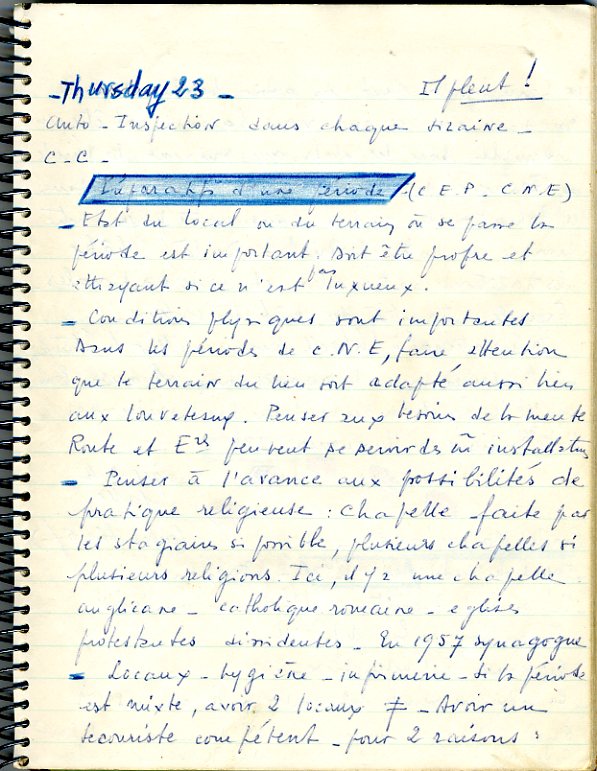 - Thursday 23 -
Il pleut !
Auto - Inspection dans chaque sizaine -
C - C -
Préparatifs d'une période (C E P - C N E)
- Etat du local ou du terrain où se passe la
période est important. Doit être propre et
attrayant si ce n'est pas luxueux.
- Conditions physiques sont importantes
Dans les périodes de C.N.E, faire attention
que le terrain du lieu soit adapté aussi bien
aux louveteaux. Penser aux besoins de la meute
Route et Ers peuvent se servir des m installations
- Penser à l'avance aux possibilités de
pratique religieuse : chapelle faite par
les stagiaires si possible, plusieurs chapelles si
plusieurs religions. Ici, il y a une chapelle
anglicane - catholique romaine - eglises
protestantes dissidentes - En 1957 synagogue
- Locaux - hygiène - infirmerie - si la période
est mixte, avoir 2 locaux ≠ - Avoir un
secouriste compétent - pour 2 raisons :